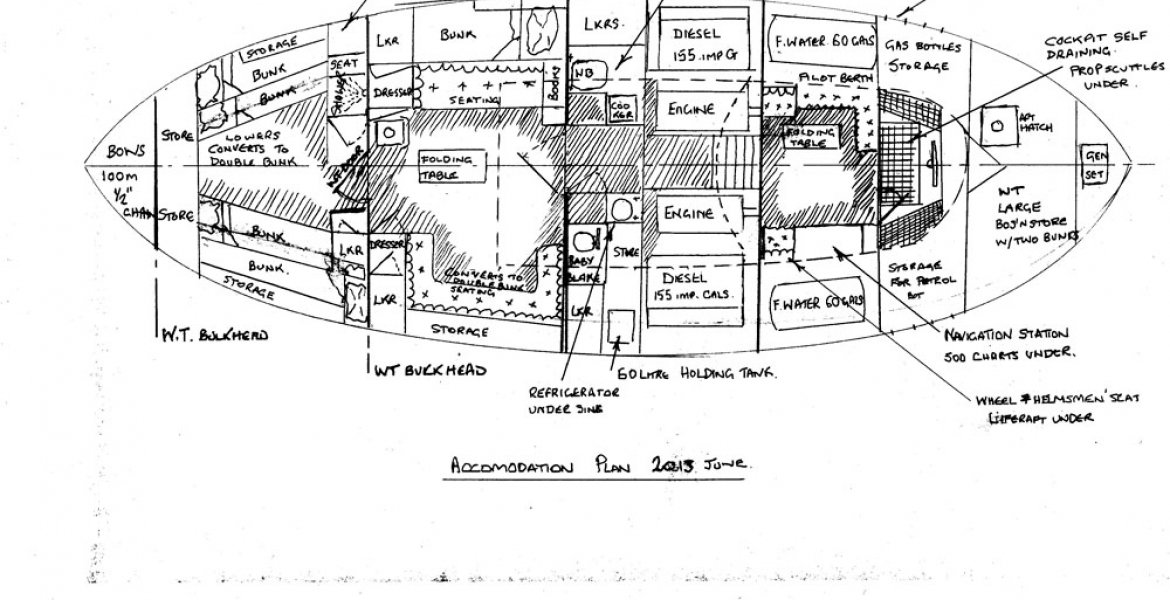 STORAGE
BUNK
BUNK
SEAT
SHOWER
LKR
BUNK
DRESSER
SEATING
BOOKS
LKRS.
WB
COO
KER
DIESEL
155.IMP G
ENGINE
F.WATER 60 GALS
PILOT BERTH
FOLDING
TABLE
GAS BOTTLES
STORAGE
COCKPIT SELF
DRAINING.
PROP SCUTTLES
UNDER.
AFT
HATCH
GEN
SET
BOWS
100m
1/2"
CHAIN
STORE
STORE
LOWERS
CONVERTS TO
DOUBLE BUNK
FOLDING
TABLE
BUNK
BUNK.
STORAGE
LKR
DRESSER
LKR.
CONVERTS TO
DOUBLE BUNK
SEATING
STORAGE
BABY
BLAKE
LKR
STORE
ENGINE
DIESEL
155 IMP. GALS.
F.WATER 60 GALS
STORAGE
FOR PETROL
WT
LARGE
BOS'N STORE
W/TWO BUNKS
W.T. BULKHEAD
WT BULKHEAD
REFRIGERATOR
UNDER SINK
60 LITRE HOLDING TANK.
NAVIGATION STATION
500 CHARTS UNDER.
WHEEL & HELMSMEN'S SEAT
LIFERAFT UNDER
ACCOMODATION PLAN 2013 JUNE.